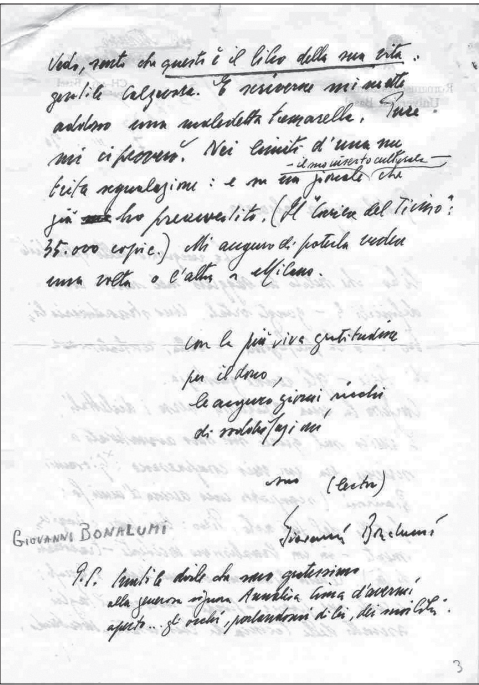 Vedo, sento che questi è il libro della sua vita:
gentile Calzavara. E scriverne mi mette
addosso una maledetta tremarella. Pure
mi ci proverò. Nei limiti d'una nu
trita segnalazione: e su un giornale che
- il suo inserto culturale -
già ho preavvertito. (Il "Corriere del Ticino":
35.000 copie.) Mi auguro di poterla vedere
una volta o l'altra a Milano.
con la più viva gratitudine
per il dono,
le auguro giorni ricchi
di soddisfazioni
suo (lector)
Giovanni Bonalumi
GIOVANNI BONALUMI
P.S. Inutile dirle che sono gratissimo
alla generosa signora Annalisa Cima d'avermi
aperto... gli occhi, parlandomi di lei, dei suoi libri.
3